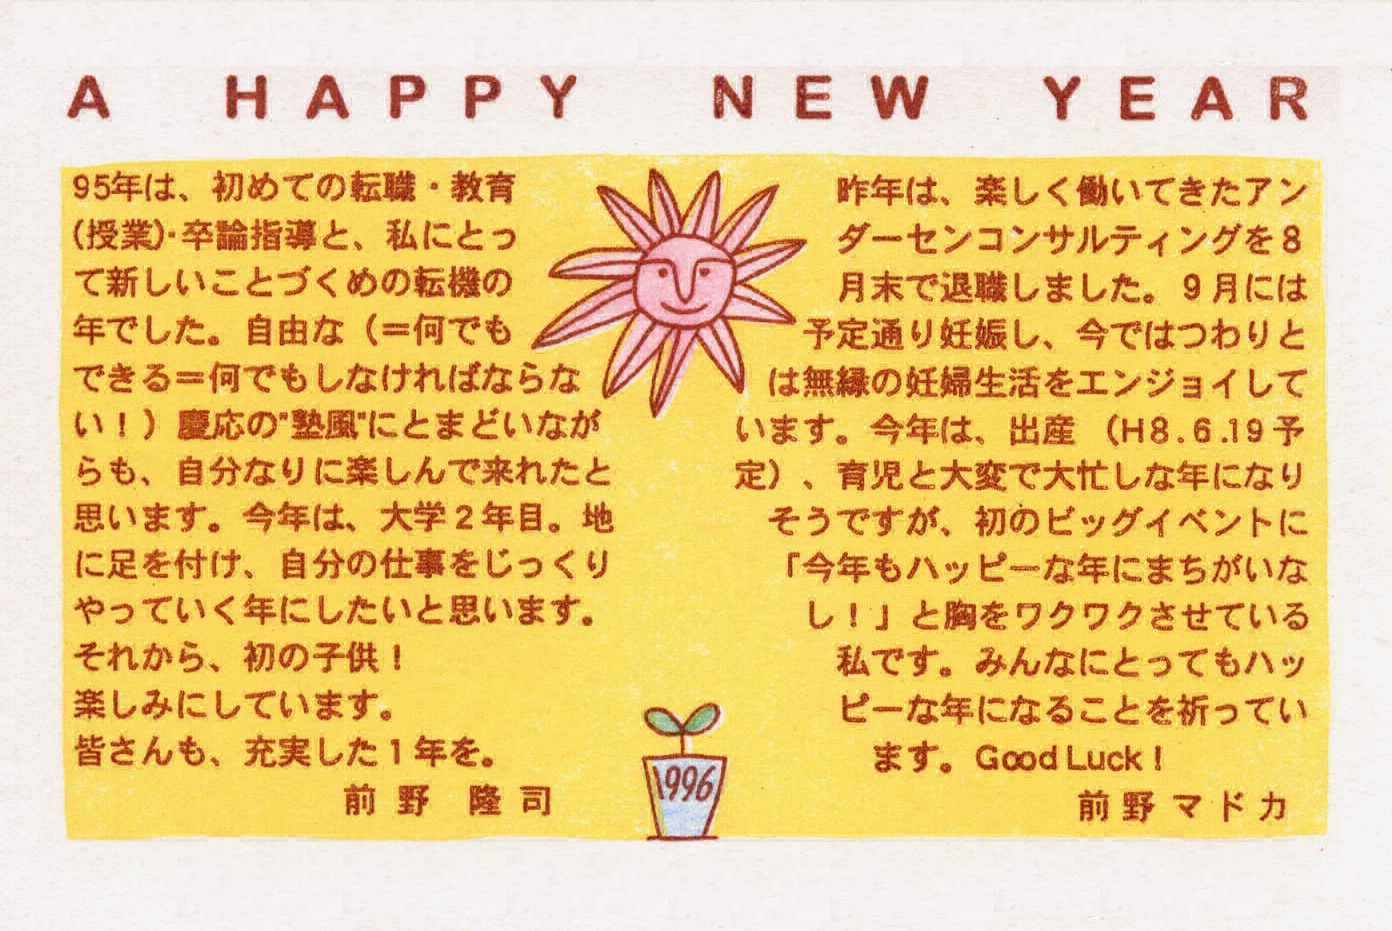 A HAPPY NEW YEAR
95年は、初めての転職・教育
(授業)・卒論指導と、私にとっ
て新しいことづくめの転機の
年でした。自由な（＝何でも
できる＝何でもしなければならな
い！）慶応の"塾風"にとまどいなが
らも、自分なりに楽しんで来れたと
思います。今年は、大学２年目。地
に足を付け、自分の仕事をじっくり
やっていく年にしたいと思います。
それから、初の子供！
楽しみにしています。
皆さんも、充実した１年を。
前野 隆司
昨年は、楽しく働いてきたアン
ダーセンコンサルティングを８
月末で退職しました。９月には
予定通り妊娠し、今ではつわりと
は無縁の妊婦生活をエンジョイして
います。今年は、出産（H8.6.19予
定）、育児と大変で大忙しな年になり
そうですが、初のビッグイベントに
「今年もハッピーな年にまちがいな
し！」と胸をワクワクさせている
私です。みんなにとってもハッ
ピーな年になることを祈ってい
ます。Good Luck！
前野マドカ
1996